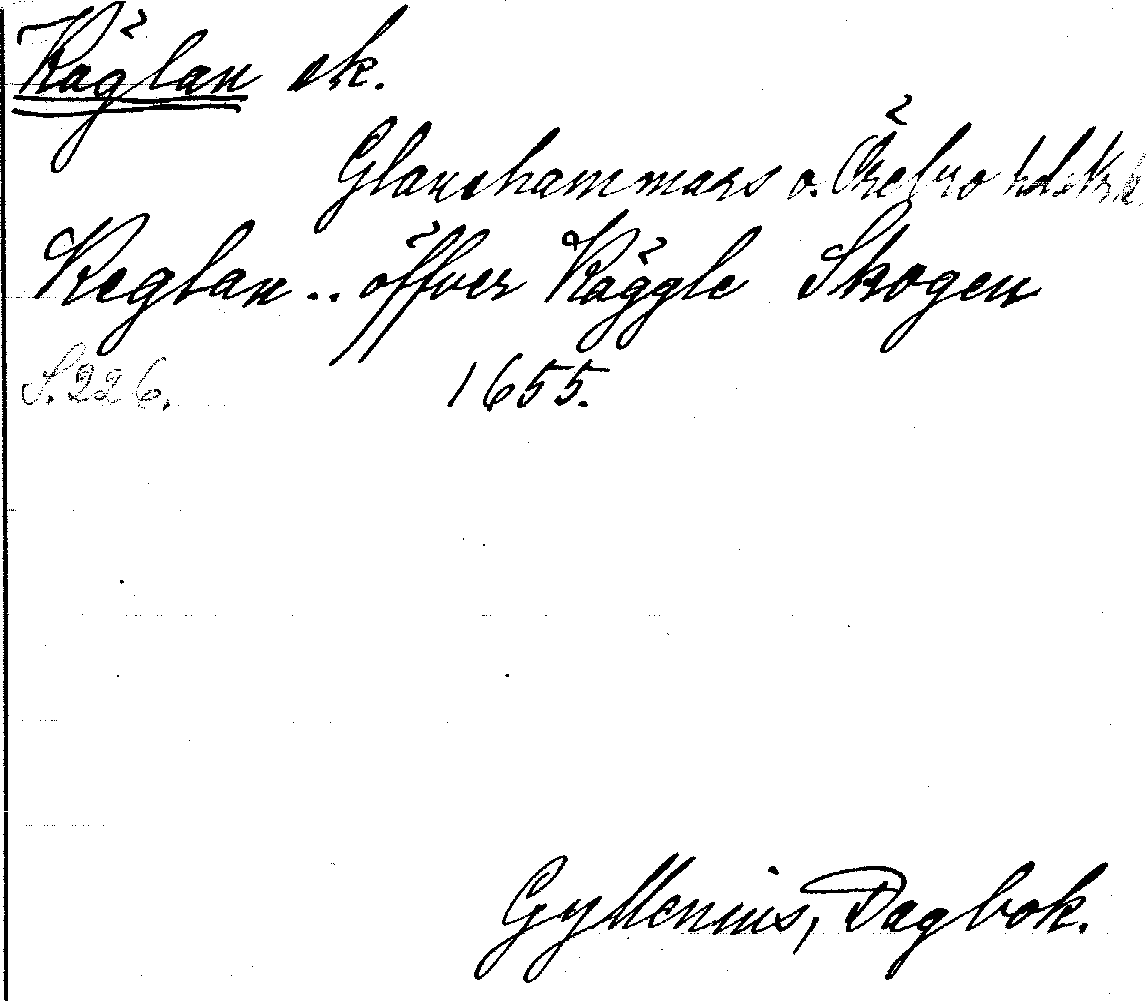 Käglan sk.
Glanshammars o. Örebro hdskr.
Keglan .. öffver Käggle Skogen
S. 226. 1655.
Gyllenius, Dagbok.